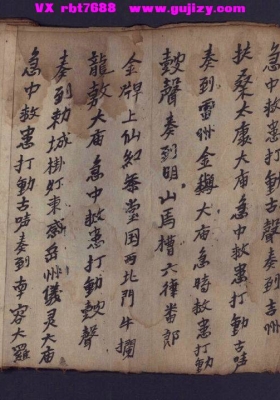 VX rbt7688 www.gujizy.com
急中救患打動鼓聲奏到古州
扶桑太康大庙急中救患打動古声
奏到雷州金鐏大庙急時救患打動
鼓聲奏到明山馬槽六律番郎
金牌上仙紅黎堂国西北門牛攔
龍敖大庙急中救患打動鼓聲
奏到勅城掛灯東感岳州儀灵大庙
急中救患打動古声奏到車容大羅